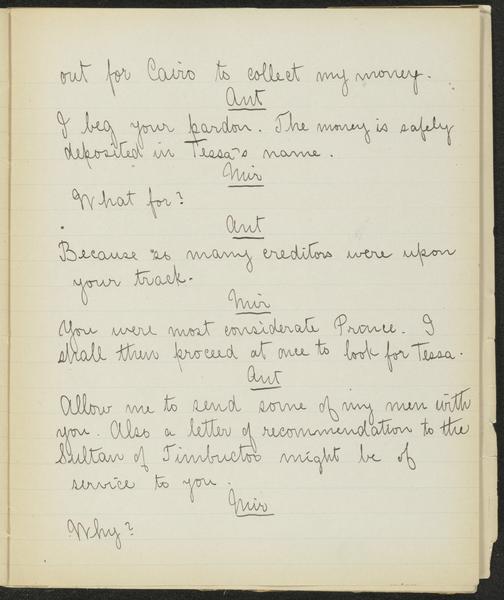 out for Cairo to collect my money.
Ant
I beg your pardon. The money is safely
deposited in Tessa's name.
Mir
What for?
Ant
Because so many creditors were upon
your track.
Mir
You were most considerate Prance. I
shall then proceed at once to look for Tessa.
Ant
Allow me to send some of my men with
you. Also a letter of recommendation to the
Sultan of Timbuctoo might be of
service to you.
Mir
Why?